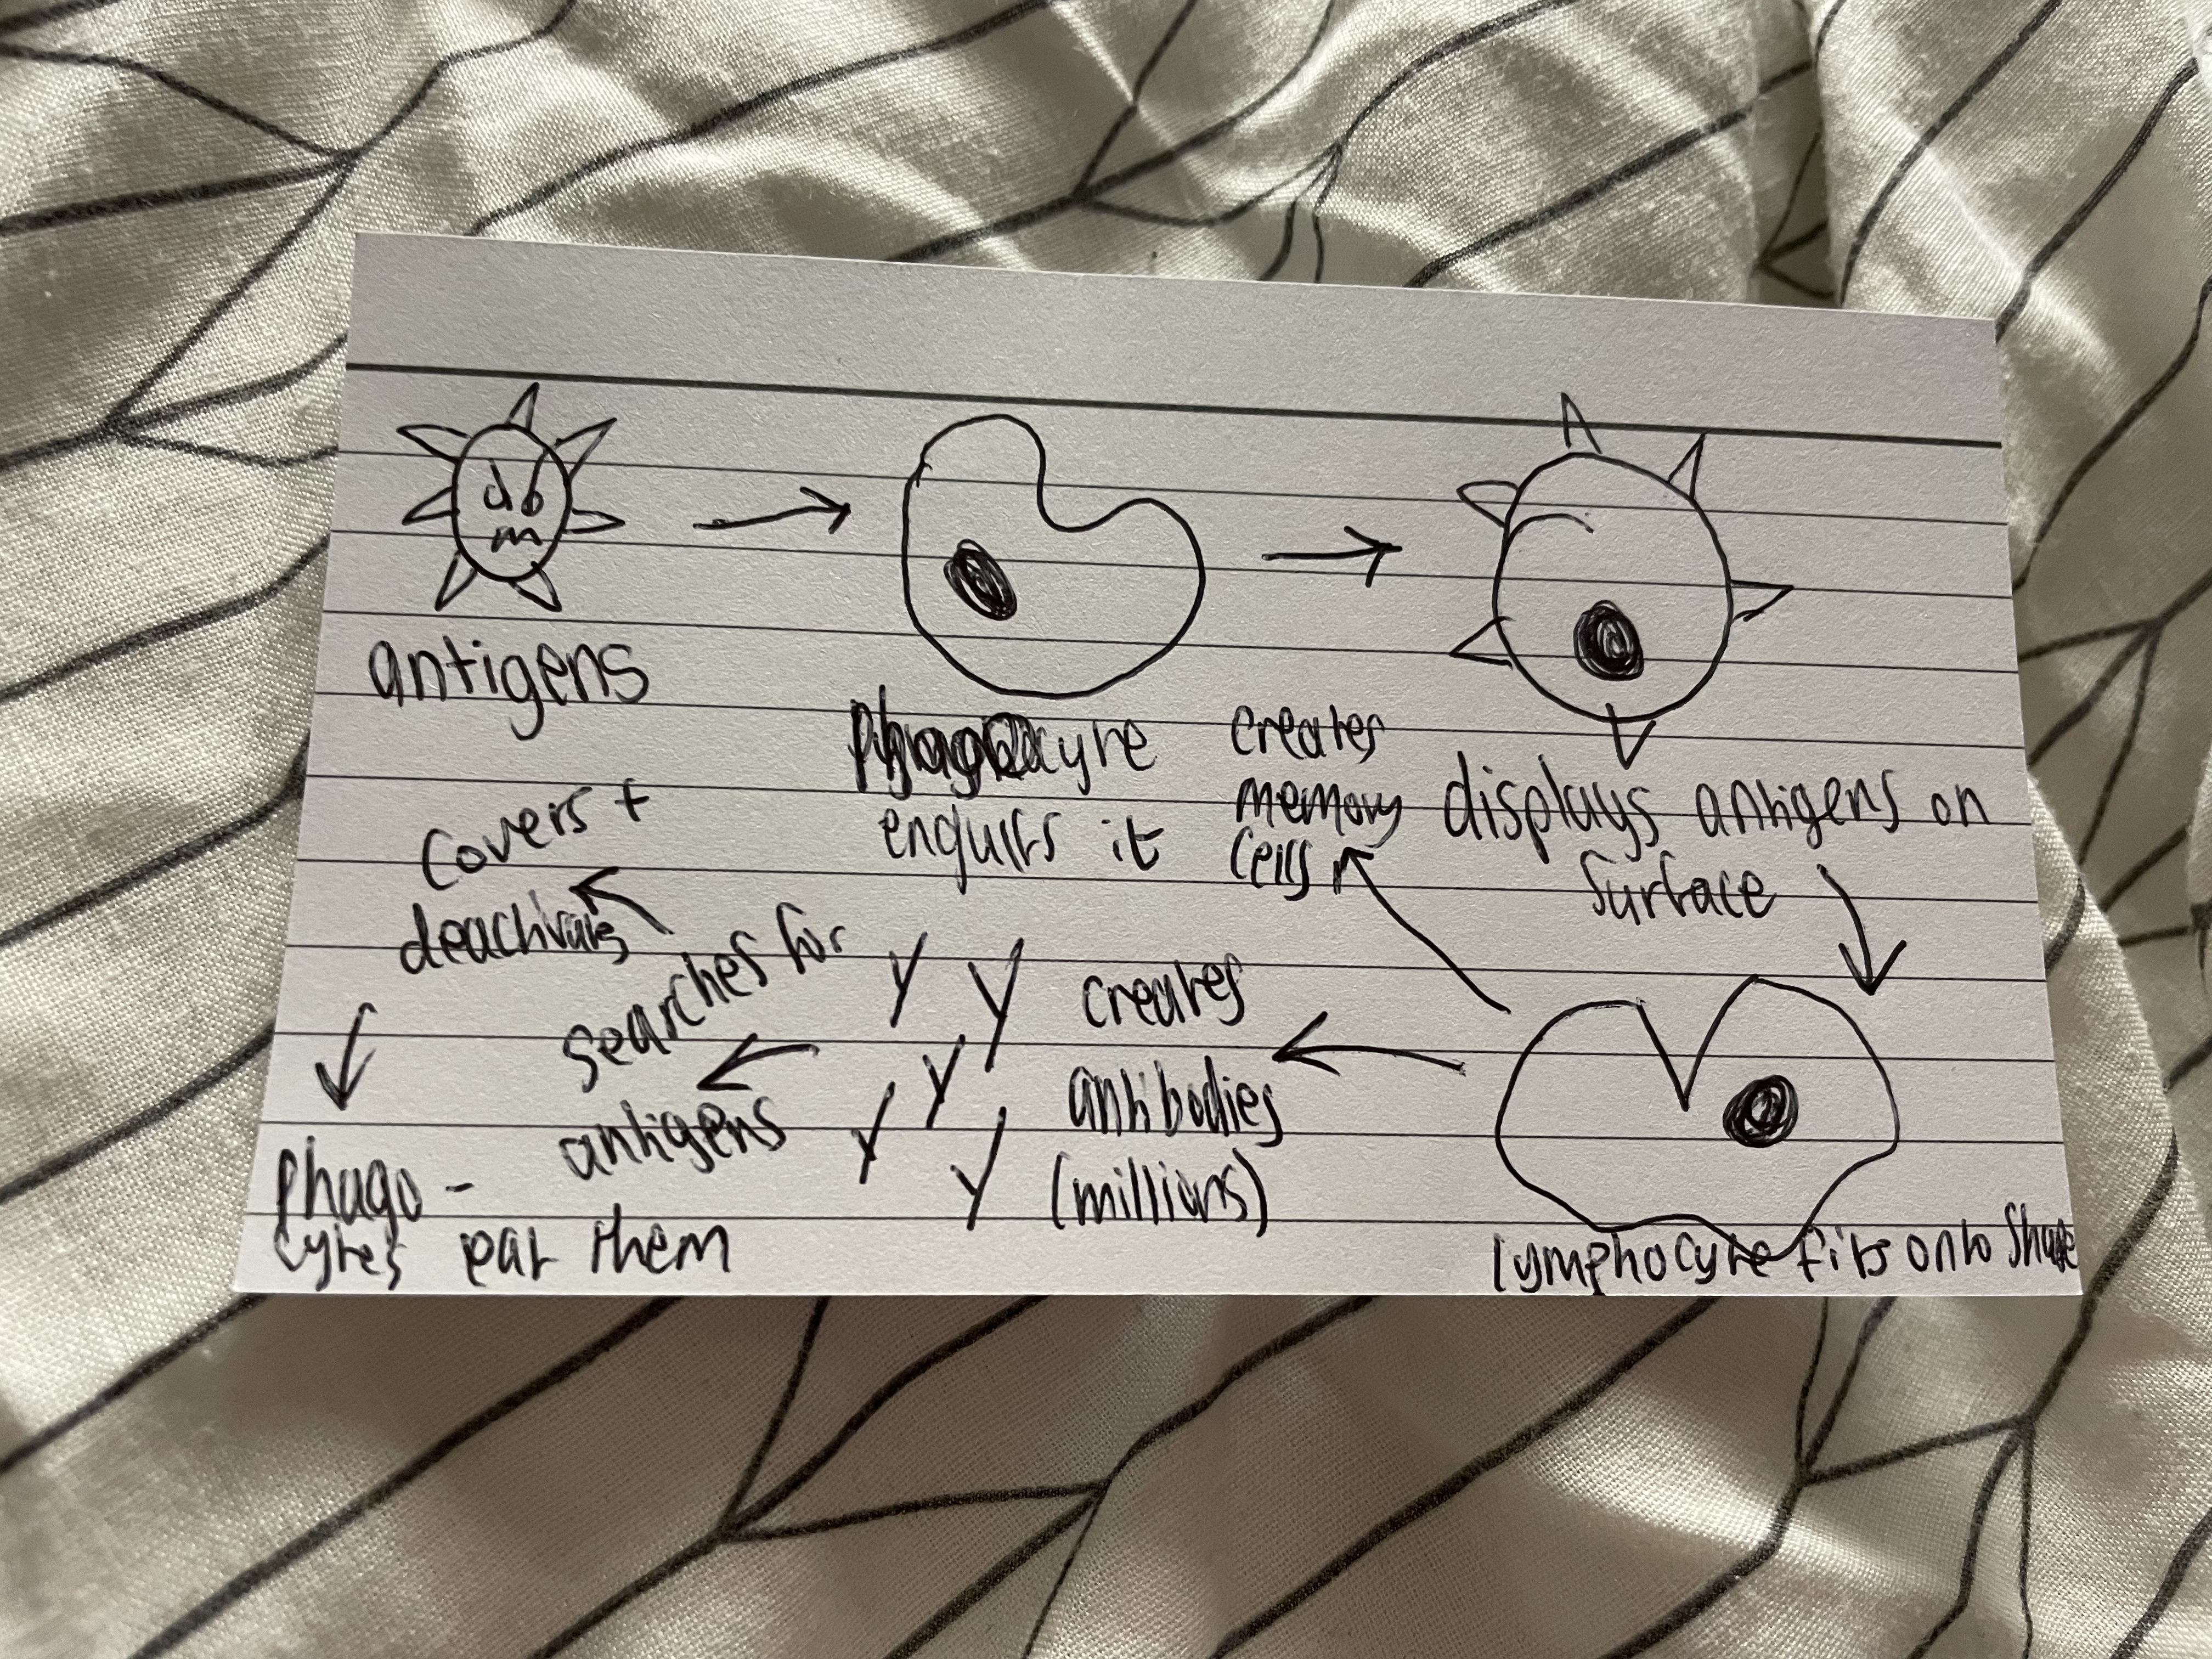 antigens
Phagocyte
engulfs it
displays antigens on
surface
lymphocyte fits onto shape
creates
memory
cells
creates
antibodies
(millions)
searches for
antigens
covers +
deactivates
Phago -
cytes eat them